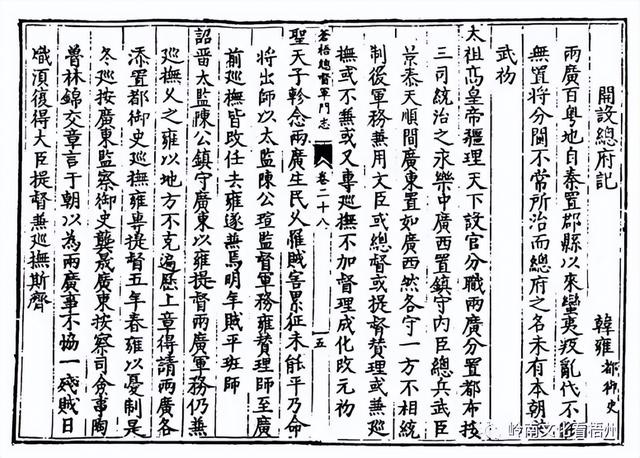 開設總府記
韓雍都御史
兩廣百粵地自秦置郡縣以來蠻夷叛亂代不
無置將分閫不常所治而總府之名未有本朝
武初
太祖高皇帝疆理天下設官分職兩廣分置都布按
三司統治之永樂中廣西置鎮守内臣總兵武臣
景泰天順間廣東置如廣西然各守一方不相統
制後軍務兼用文臣或總督或提督賛理或兼廵
撫或不兼或又專廵撫不加督理成化改元初
蒼梧總督軍門志
卷二十八
五
聖天子軫念兩廣生民久罹賊害累征未能平乃命
將出師以太監陳公瑄監督軍務雍賛理師至廣
前廵撫皆改任去雍遂兼焉明年賊平班師
詔晉太監陳公鎮守廣東以雍提督兩廣軍務仍兼
廵撫乂之雍以地方不克遍歷上章得請兩廣各
添置都御史廵撫雍專提督五年春雍以憂制是
冬廵按廣東監察御史龔晟廣東按察司僉事陶
魯林錦交章言于朝以為兩廣事不協一殘賊日
熾須復得大臣提督兼廵撫斯齊
岭南文化看梧州